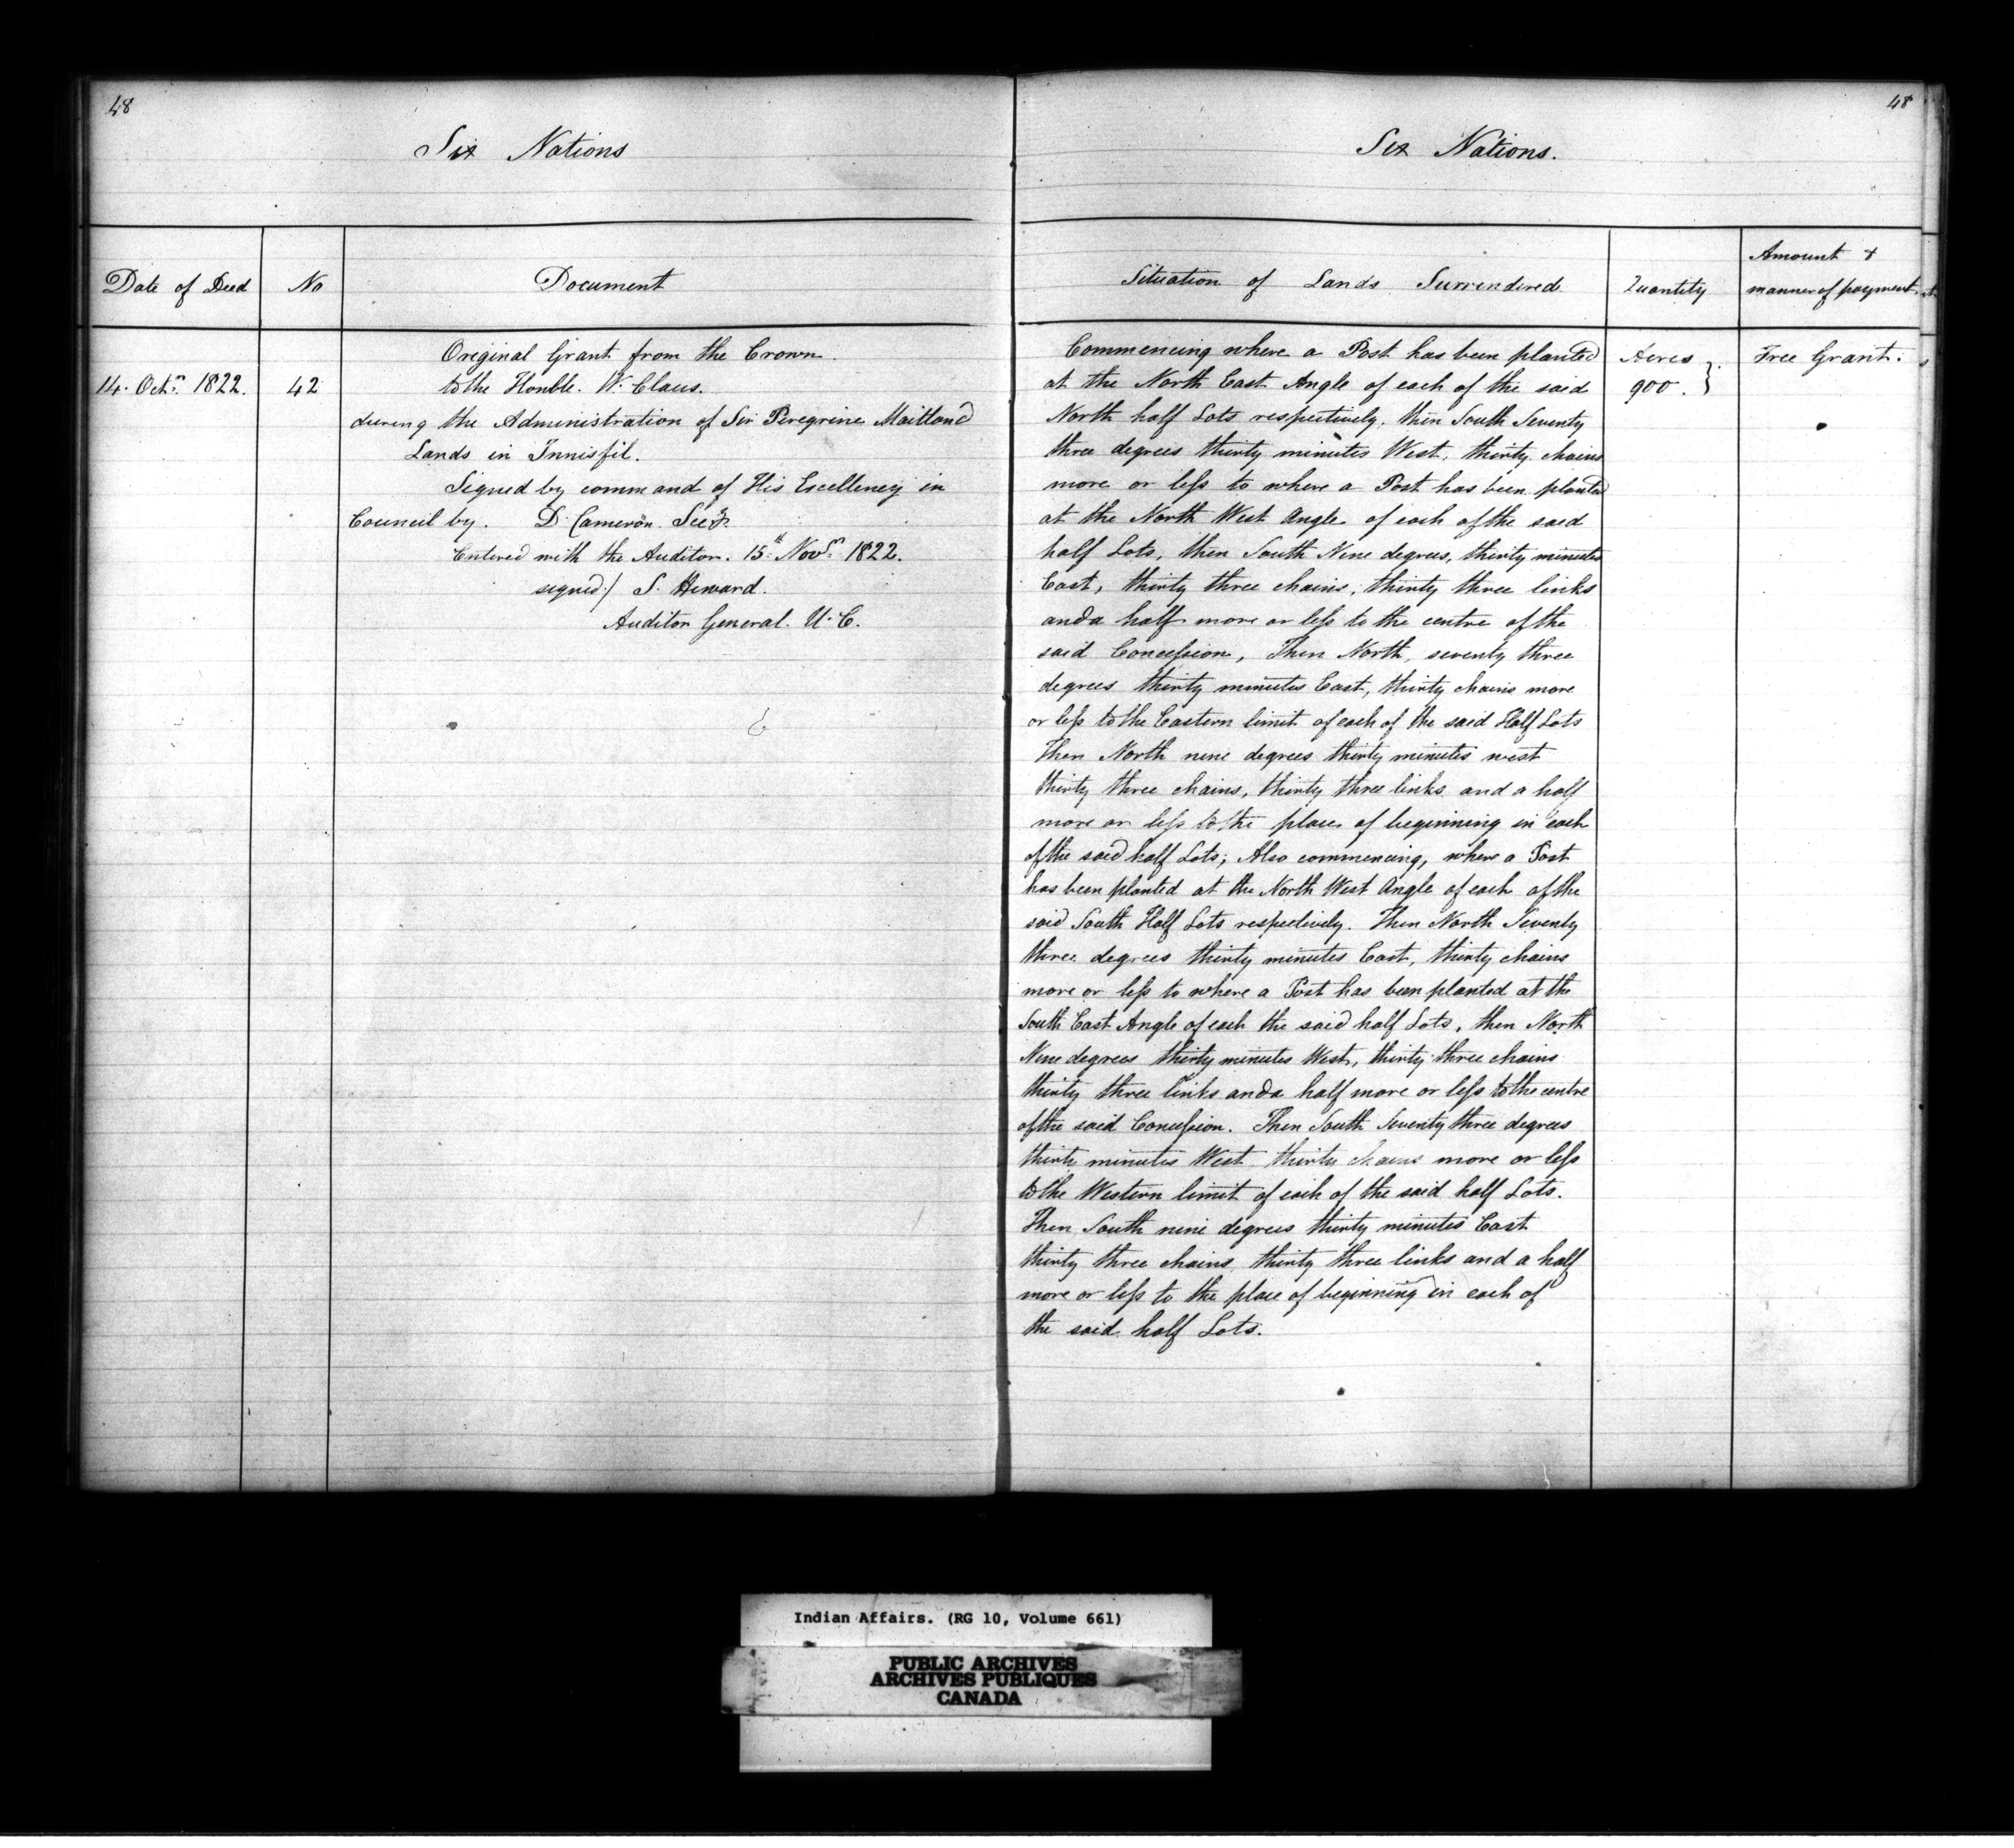 48
Six Nations
Date of Deed
No
Document
14. Octr. 1822.
42
Original Grant from the Crown.
to the Honble. W. Claus.
during the Administration of Sir Peregrine Maitland
Lands in Innisfil.
Signed by command of His Excellency in
Council by. D. Cameron. Secy.
Entered with the Auditor. 15th Novr. 1822.
signed/ S. Heward.
Auditor General. U.C.
48
Six Nations.
Situation of Lands Surrendered
Quantity
Amount &
manner of payment
Commencing where a Post has been planted
at the North East Angle of each of the said
North half Lots respectively, then South Seventy
three degrees thirty minutes West, thirty chains
more or less to where a Post has been planted
at the North West Angle of each of the said
half Lots, then South Nine degrees, thirty minutes
East, thirty three chains, thirty three links
and a half more or less to the centre of the
said Concession, Then North, seventy three
degrees thirty minutes East, thirty chains more
or less to the Eastern limit of each of the said Half Lots
Then North nine degrees thirty minutes west
thirty three chains, thirty three links and a half
more or less to the place of beginning in each
of the said half Lots; Also commencing, where a Post
has been planted at the North West Angle of each of the
said South Half Lots respectively. Then North Seventy
three degrees thirty minutes East, thirty chains
more or less to where a Post has been planted at the
South East Angle of each the said half Lots, then North
Nine degrees thirty minutes West, thirty three chains
thirty three links and a half more or less to the centre
of the said Concession. Then South Seventy three degrees
thirty minutes West thirty chains more or less
to the Western limit of each of the said half Lots.
Then South nine degrees thirty minutes East
thirty three chains, thirty three links and a half
more or less to the place of beginning in each of
the said half Lots.
Acres
900.
Free Grant.
Indian Affairs. (RG 10, Volume 661)
PUBLIC ARCHIVES
ARCHIVES PUBLIQUES
CANADA